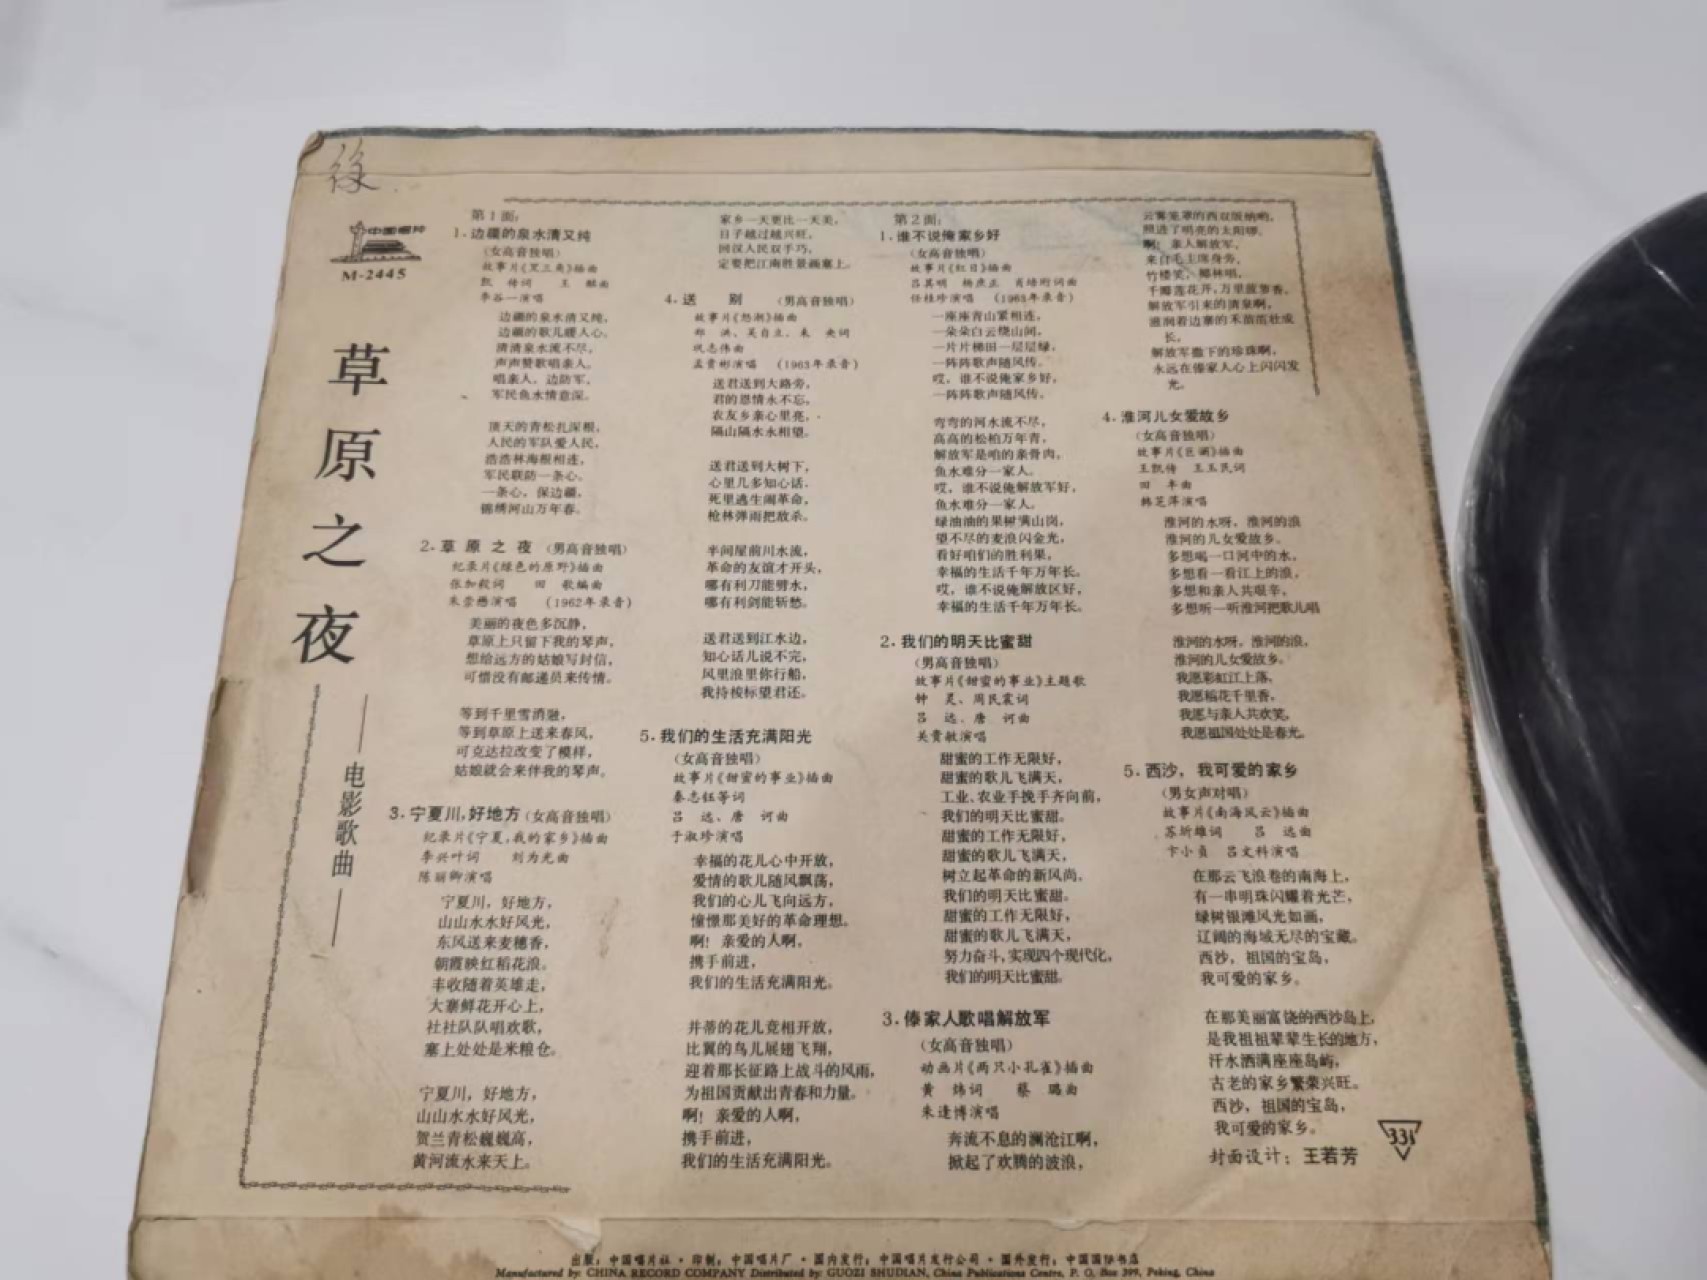 徐
中国唱片
M-2445
草原之夜
——电影歌曲——
第1面:
1.边疆的泉水清又纯
(女高音独唱)
故事片《黑三角》插曲
凯 传词 王 酩曲
李谷一演唱
边疆的泉水清又纯,
边疆的歌儿暖人心。
清清泉水流不尽,
声声赞歌唱亲人。
唱亲人、边防军,
军民鱼水情意深。
顶天的青松扎深根,
人民的军队爱人民,
浩浩林海根相连,
军民联防一条心。
一条心,保边疆,
锦绣河山万年春。
2.草原之夜 (男高音独唱)
纪录片《绿色的原野》插曲
张加毅词 田 歌编曲
朱崇懋演唱 (1962年录音)
美丽的夜色多沉静,
草原上只留下我的琴声,
想给远方的姑娘写封信,
可惜没有邮递员来传情。
等到千里雪消融,
等到草原上送来春风,
可克达拉改变了模样,
姑娘就会来伴我的琴声。
3.宁夏川,好地方(女高音独唱)
纪录片《宁夏,我的家乡》插曲
李兴叶词 刘为光曲
陈丽卿演唱
宁夏川,好地方,
山山水水好风光,
东风送来麦穗香,
朝霞映红稻花浪。
丰收随着英雄走,
大寨鲜花开心上,
社社队队唱欢歌,
塞上处处是米粮仓。
宁夏川,好地方,
山山水水好风光,
贺兰青松巍巍高,
黄河流水来天上。
家乡一天更比一天美,
日子越过越兴旺,
回汉人民双手巧,
定要把江南胜景画塞上。
4.送 别 (男高音独唱)
故事片《怒潮》插曲
郑 洪、吴自立、未 央词
巩志伟曲
孟贵彬演唱 (1963年录音)
送君送到大路旁,
君的恩情永不忘,
农友乡亲心里亮,
隔山隔水永相望。
送君送到大树下,
心里几多知心话,
死里逃生闹革命,
枪林弹雨把敌杀。
半间屋前川水流,
革命的友谊才开头,
哪有利刀能劈水,
哪有利剑能斩愁。
送君送到江水边,
知心话儿说不完,
风里浪里你行船,
我持梭标望君还。
5.我们的生活充满阳光
(女高音独唱)
故事片《甜蜜的事业》插曲
秦志钰等词
吕 远、唐 诃曲
于淑珍演唱
幸福的花儿心中开放,
爱情的歌儿随风飘荡,
我们的心儿飞向远方,
憧憬那美好的革命理想。
啊!亲爱的人啊,
携手前进,
我们的生活充满阳光。
并蒂的花儿竞相开放,
比翼的鸟儿展翅飞翔,
迎着那长征路上战斗的风雨,
为祖国贡献出青春和力量。
啊!亲爱的人啊,
携手前进,
我们的生活充满阳光。
第2面:
1.谁不说俺家乡好
(女高音独唱)
故事片《红日》插曲
吕其明 杨庶正 肖培珩词曲
任桂珍演唱 (1963年录音)
一座座青山紧相连,
一朵朵白云绕山间,
一片片梯田一层层绿,
一阵阵歌声随风传。
哎,谁不说俺家乡好,
一阵阵歌声随风传。
弯弯的河水流不尽,
高高的松柏万年青,
解放军是咱的亲骨肉,
鱼水难分一家人。
哎,谁不说俺解放军好,
鱼水难分一家人。
绿油油的果树满山岗,
望不尽的麦浪闪金光,
看好咱们的胜利果,
幸福的生活千年万年长。
哎,谁不说俺解放区好,
幸福的生活千年万年长。
2.我们的明天比蜜甜
(男高音独唱)
故事片《甜蜜的事业》主题歌
钟 灵、周民震词
吕 远、唐 诃曲
关贵敏演唱
甜蜜的工作无限好,
甜蜜的歌儿飞满天,
工业、农业手挽手齐向前,
我们的明天比蜜甜。
甜蜜的工作无限好,
甜蜜的歌儿飞满天,
树立起革命的新风尚,
我们的明天比蜜甜。
甜蜜的工作无限好,
甜蜜的歌儿飞满天,
努力奋斗,实现四个现代化,
我们的明天比蜜甜。
3.傣家人歌唱解放军
(女高音独唱)
动画片《两只小孔雀》插曲
黄 炜词 蔡 璐曲
朱逢博演唱
奔流不息的澜沧江啊,
掀起了欢腾的波浪,
云雾笼罩的西双版纳哟,
照进了明亮的太阳哪。
啊!亲人解放军,
来自毛主席身旁,
竹楼笑,椰林唱,
千瓣莲花开,万里菠萝香。
解放军引来的清泉啊,
滋润着边寨的禾苗茁壮成
长,
解放军撒下的珍珠啊,
永远在傣家人心上闪闪发
光。
4.淮河儿女爱故乡
(女高音独唱)
故事片《巨澜》插曲
王凯传 王玉民词
田 丰曲
韩芝萍演唱
淮河的水呀,淮河的浪
淮河的儿女爱故乡。
多想喝一口河中的水,
多想看一看江上的浪,
多想和亲人共艰辛,
多想听一听淮河把歌儿唱
淮河的水呀,淮河的浪,
淮河的儿女爱故乡。
我愿彩虹江上落,
我愿稻花千里香,
我愿与亲人共欢笑,
我愿祖国处处是春光。
5.西沙,我可爱的家乡
(男女声对唱)
故事片《南海风云》插曲
苏圻雄词 吕 远曲
卞小贞 吕文科演唱
在那云飞浪卷的南海上,
有一串明珠闪耀着光芒,
绿树银滩风光如画,
辽阔的海域无尽的宝藏。
西沙,祖国的宝岛,
我可爱的家乡。
在那美丽富饶的西沙岛上,
是我祖祖辈辈生长的地方,
汗水洒满座座岛屿,
古老的家乡繁荣兴旺。
西沙,祖国的宝岛,
我可爱的家乡。
33⅓
封面设计:王若芳
出版:中国唱片社·印制:中国唱片厂·国内发行:中国唱片发行公司·国外发行:中国国际书店
Manufactured by: CHINA RECORD COMPANY Distributed by: GUOZI SHUDIAN, China Publications Centre, P. O. Box 399, Peking, China